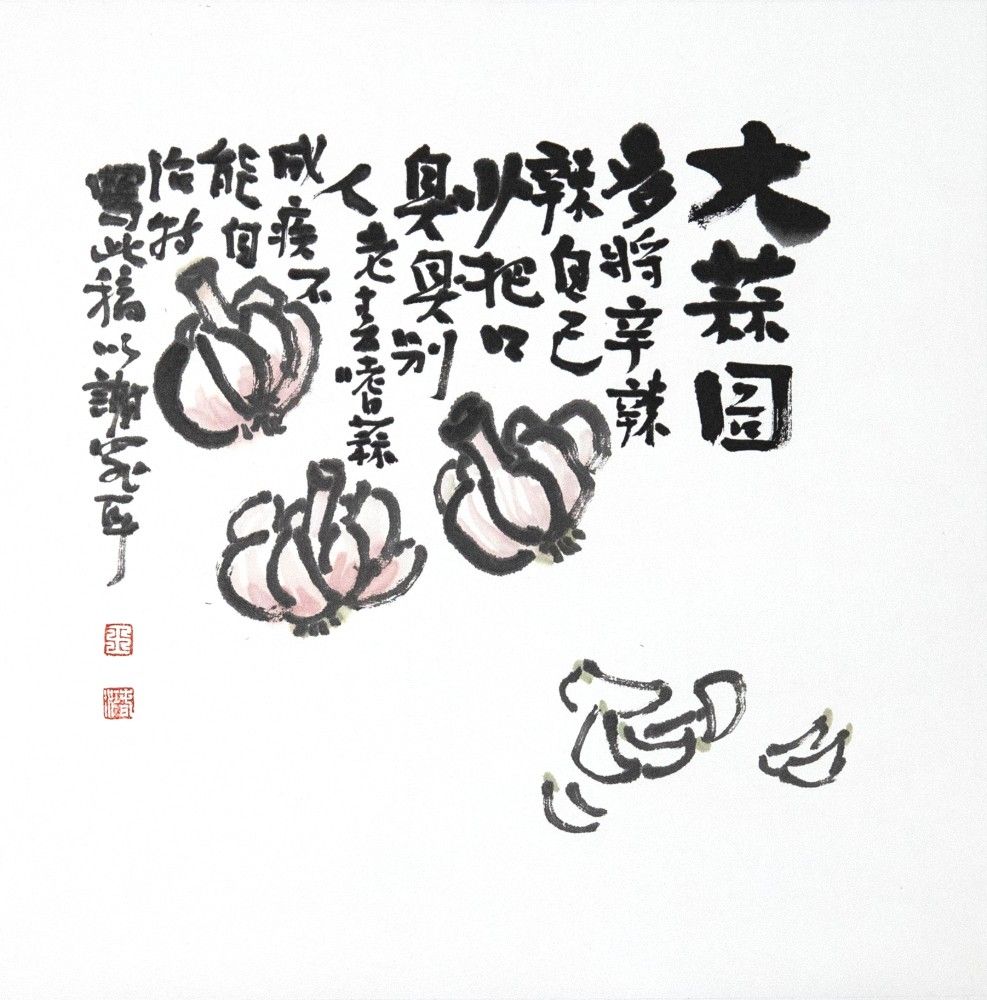 大蒜圖
多將辛辣
辣自己
少把口
臭臭別
人 老去嗜蒜
成疾不
能自
治特
寫此稿以謝
王
濤